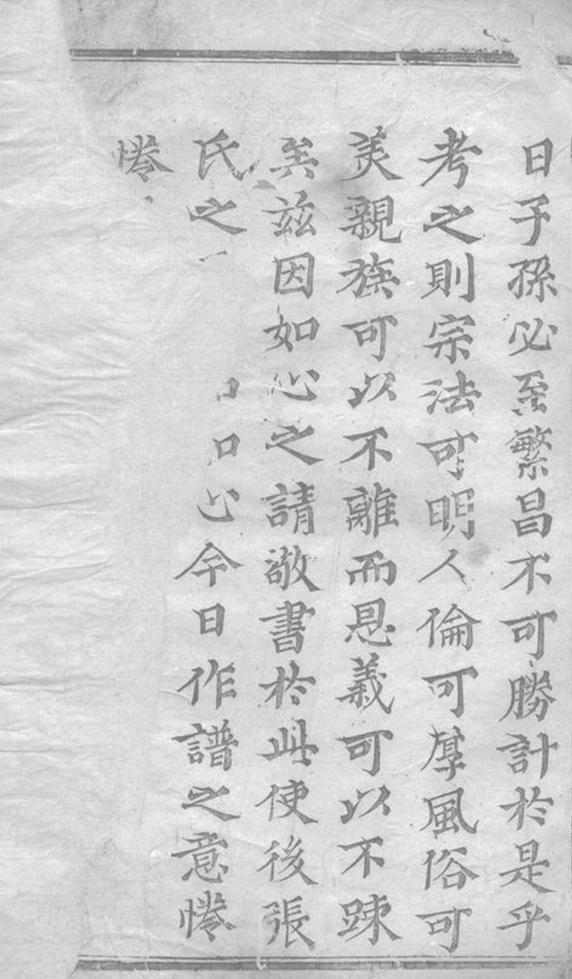 日子孫必至繁昌不可勝計於是乎
考之則宗法可明人倫可厚風俗可
美親族可以不離而恩義可以不踈
矣茲因如心之請敬書於此使後張
氏之心今日作譜之意惓
惓